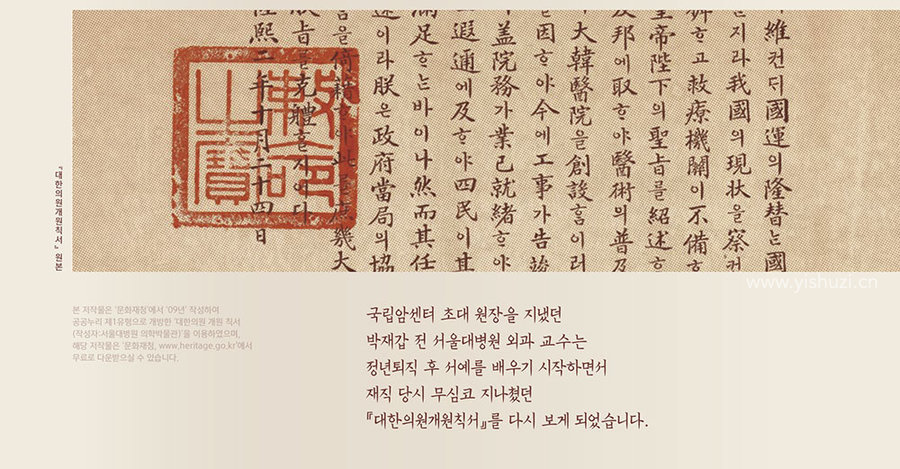 維컨ᄃᆡ國運의隆替는國
지라我國의現狀을察컨
ᄒᆞ고救療機關이不備ᄒᆞ
皇帝陛下의聖旨를紹述ᄒᆞ
邦에取ᄒᆞ야醫術의普及
大韓醫院을創設홈이러
을因ᄒᆞ야今에工事가告竣
蓋院務가業已就緖ᄒᆞ야
遐邇에及ᄒᆞ야四民이其
滿足ᄒᆞ는바이나然而其任
述이라朕은政府當局의協
을倚藉ᄒᆞ야此를
旨를克體ᄒᆞᆯ지어다
隆熙二年十月二十四日
勅命之寶
『대한의원개원칙서』 원본
www.yishuzi.cn
본 저작물은 '문화재청'에서 '09년' 작성하여
공공누리 제1유형으로 개방한 '대한의원 개원 칙서
(작성자:서울대병원 의학박물관)'을 이용하였으며,
해당 저작물은 '문화재청, www.heritage.go.kr'에서
무료로 다운받으실 수 있습니다.
국립암센터 초대 원장을 지냈던
박재갑 전 서울대병원 외과 교수는
정년퇴직 후 서예를 배우기 시작하면서
재직 당시 무심코 지나쳤던
『대한의원개원칙서』를 다시 보게 되었습니다.